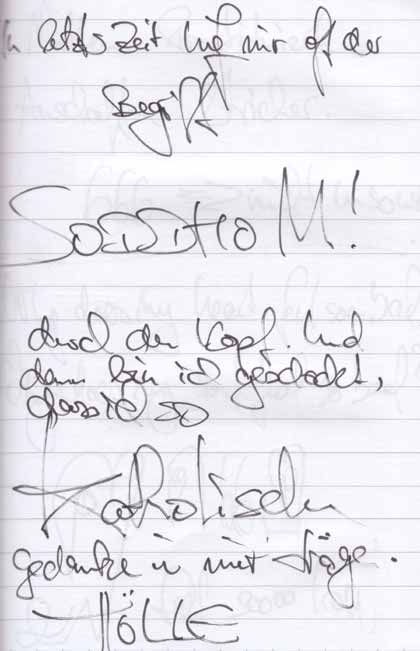 In letzte Zeit lief mir oft der
Begriff
SODDHOM!
durch den Kopf. Und
dann bin ich geschockt,
dass ich so
Katholischen
gedanke in mir träge.
HÖLLE